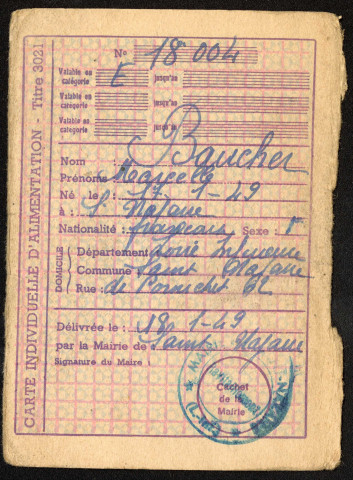 CARTE INDIVIDUELLE D'ALIMENTATION - Titre 3021
N° 18 004
Valable en catégorie E jusqu'au
Valable en catégorie jusqu'au
Valable en catégorie jusqu'au
Nom : Baucher
Prénoms
Né le : 17 1-49
à : St Nazaire
Nationalité : française Sexe : F
DOMICILE
Département Loire Inférieure
Commune Saint Nazaire
Rue : de Pornichet 62
Délivrée le : 18 1-49
par la Mairie de Saint Nazaire
Signature du Maire
Cachet de la Mairie